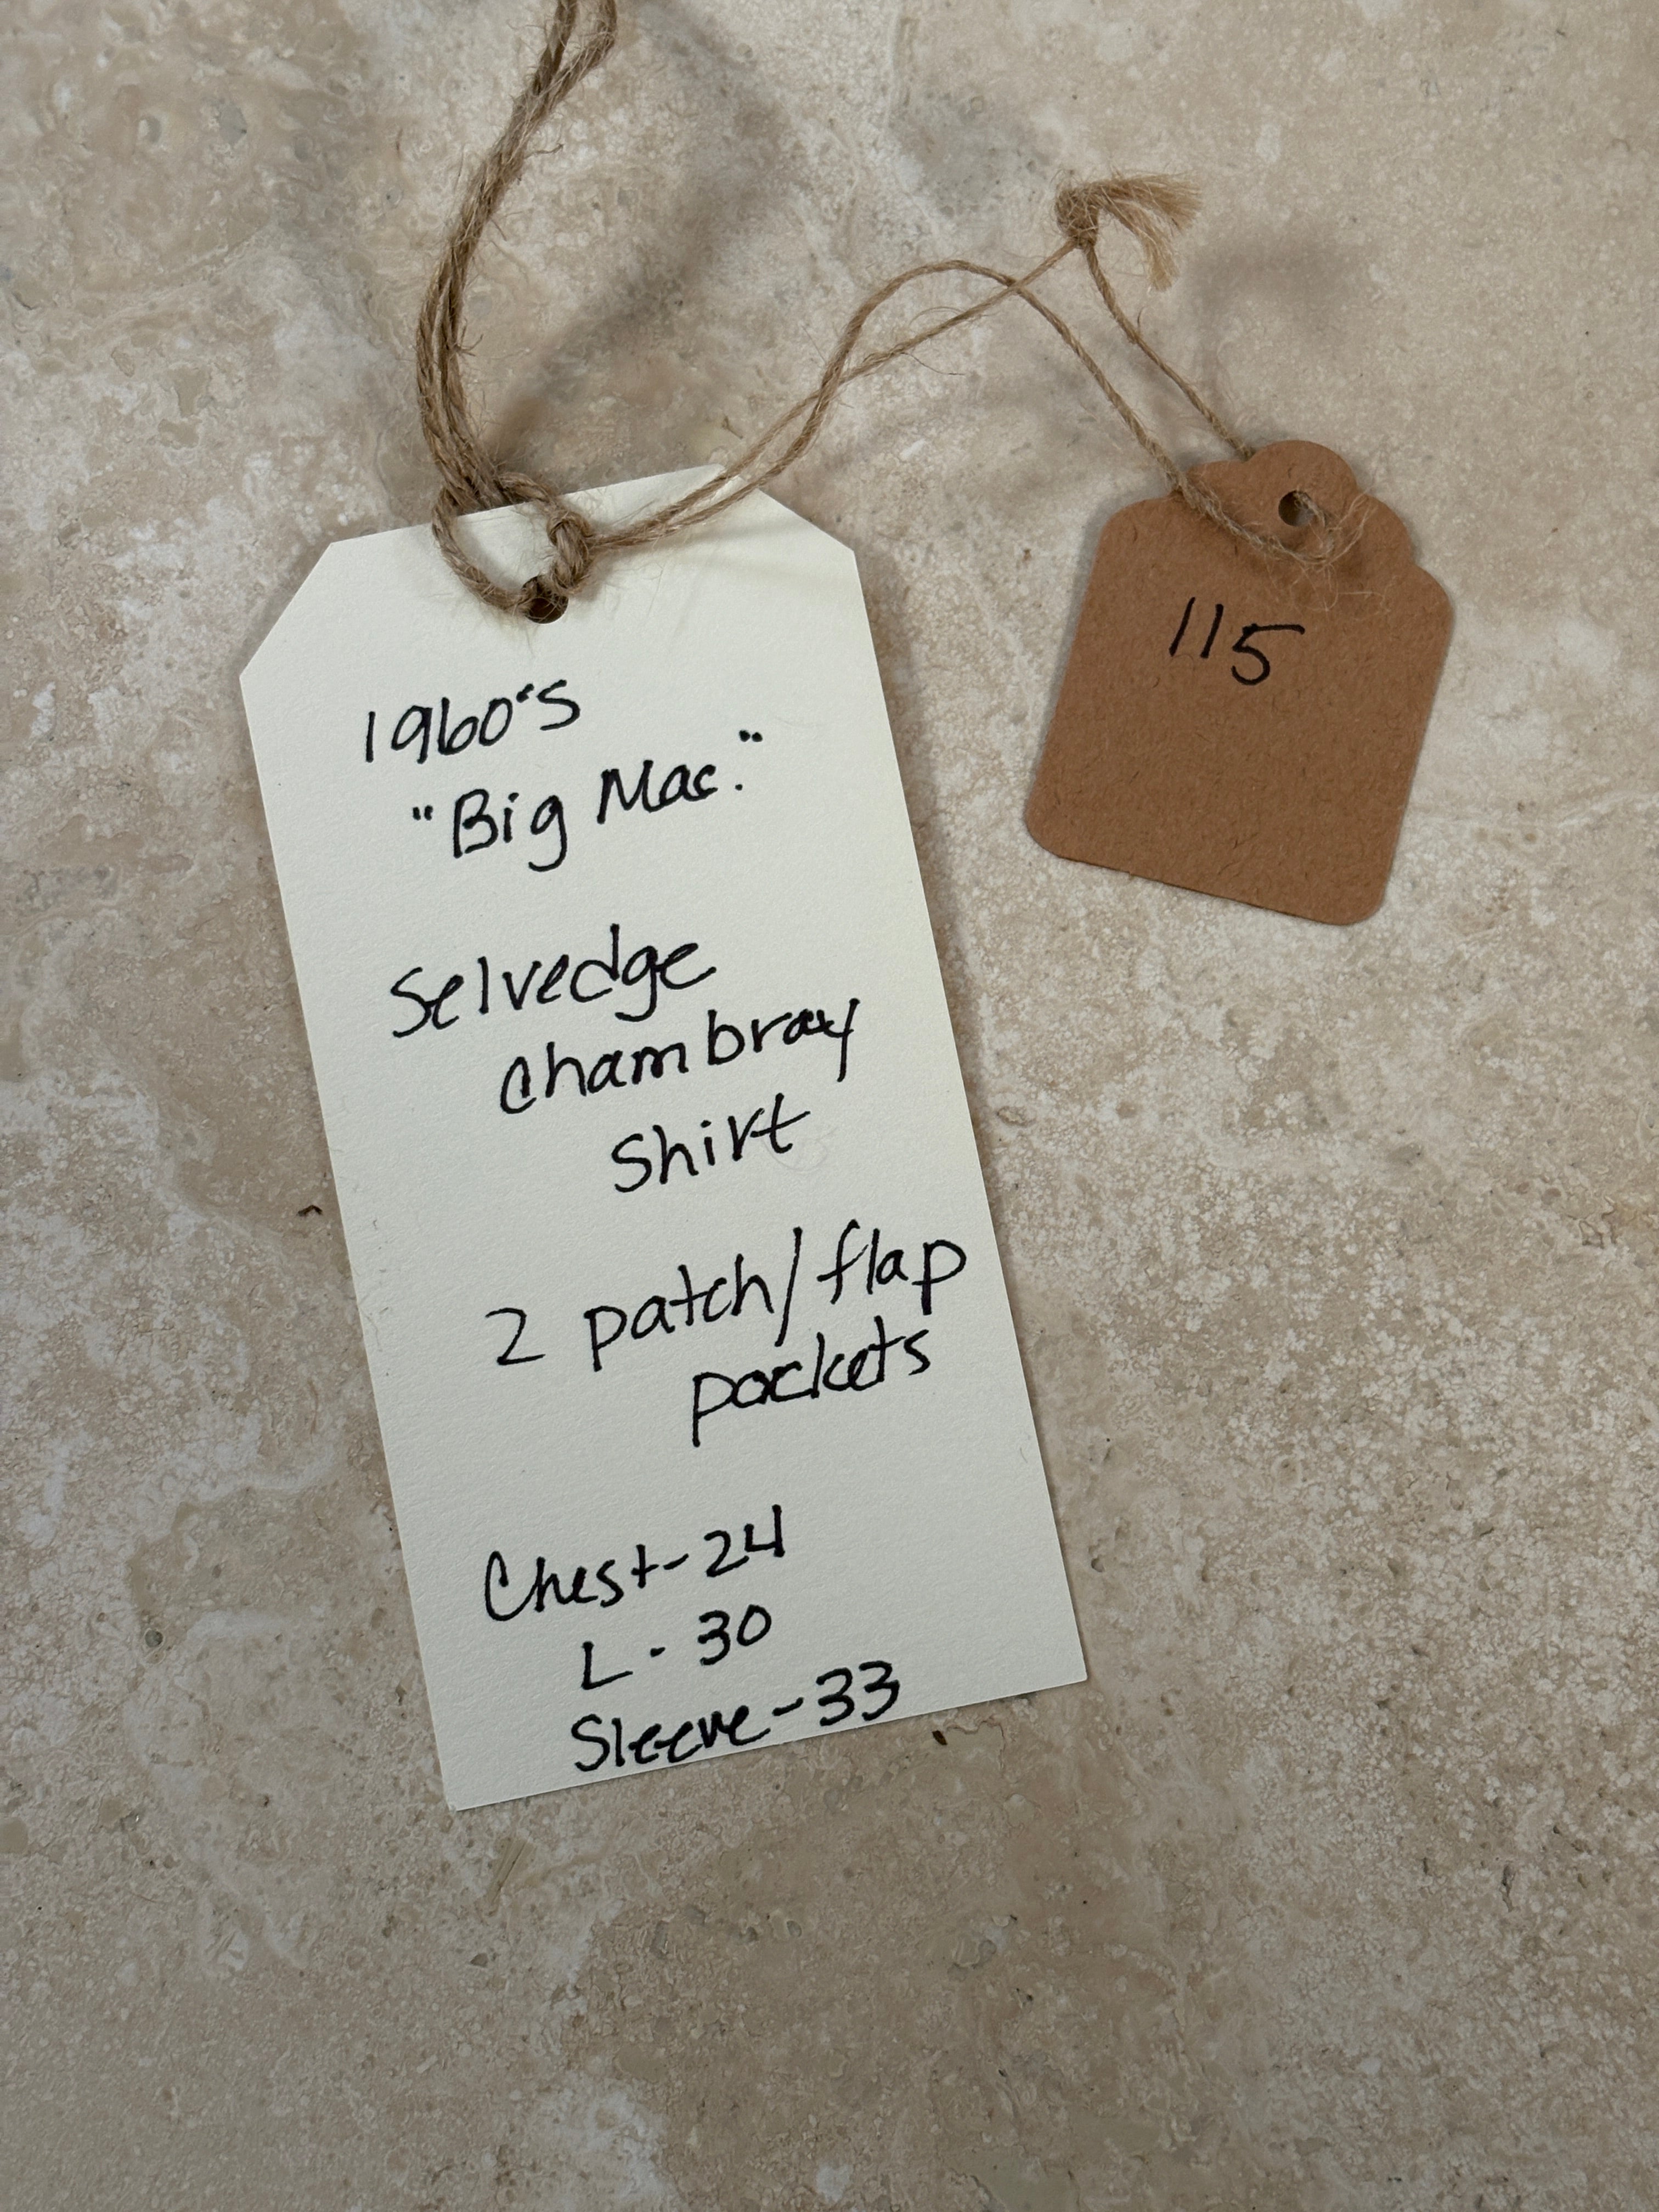 1960's
"Big Mac."
Selvedge
Chambray
Shirt
2 patch/flap
pockets
Chest-24
L-30
Sleeve-33
115